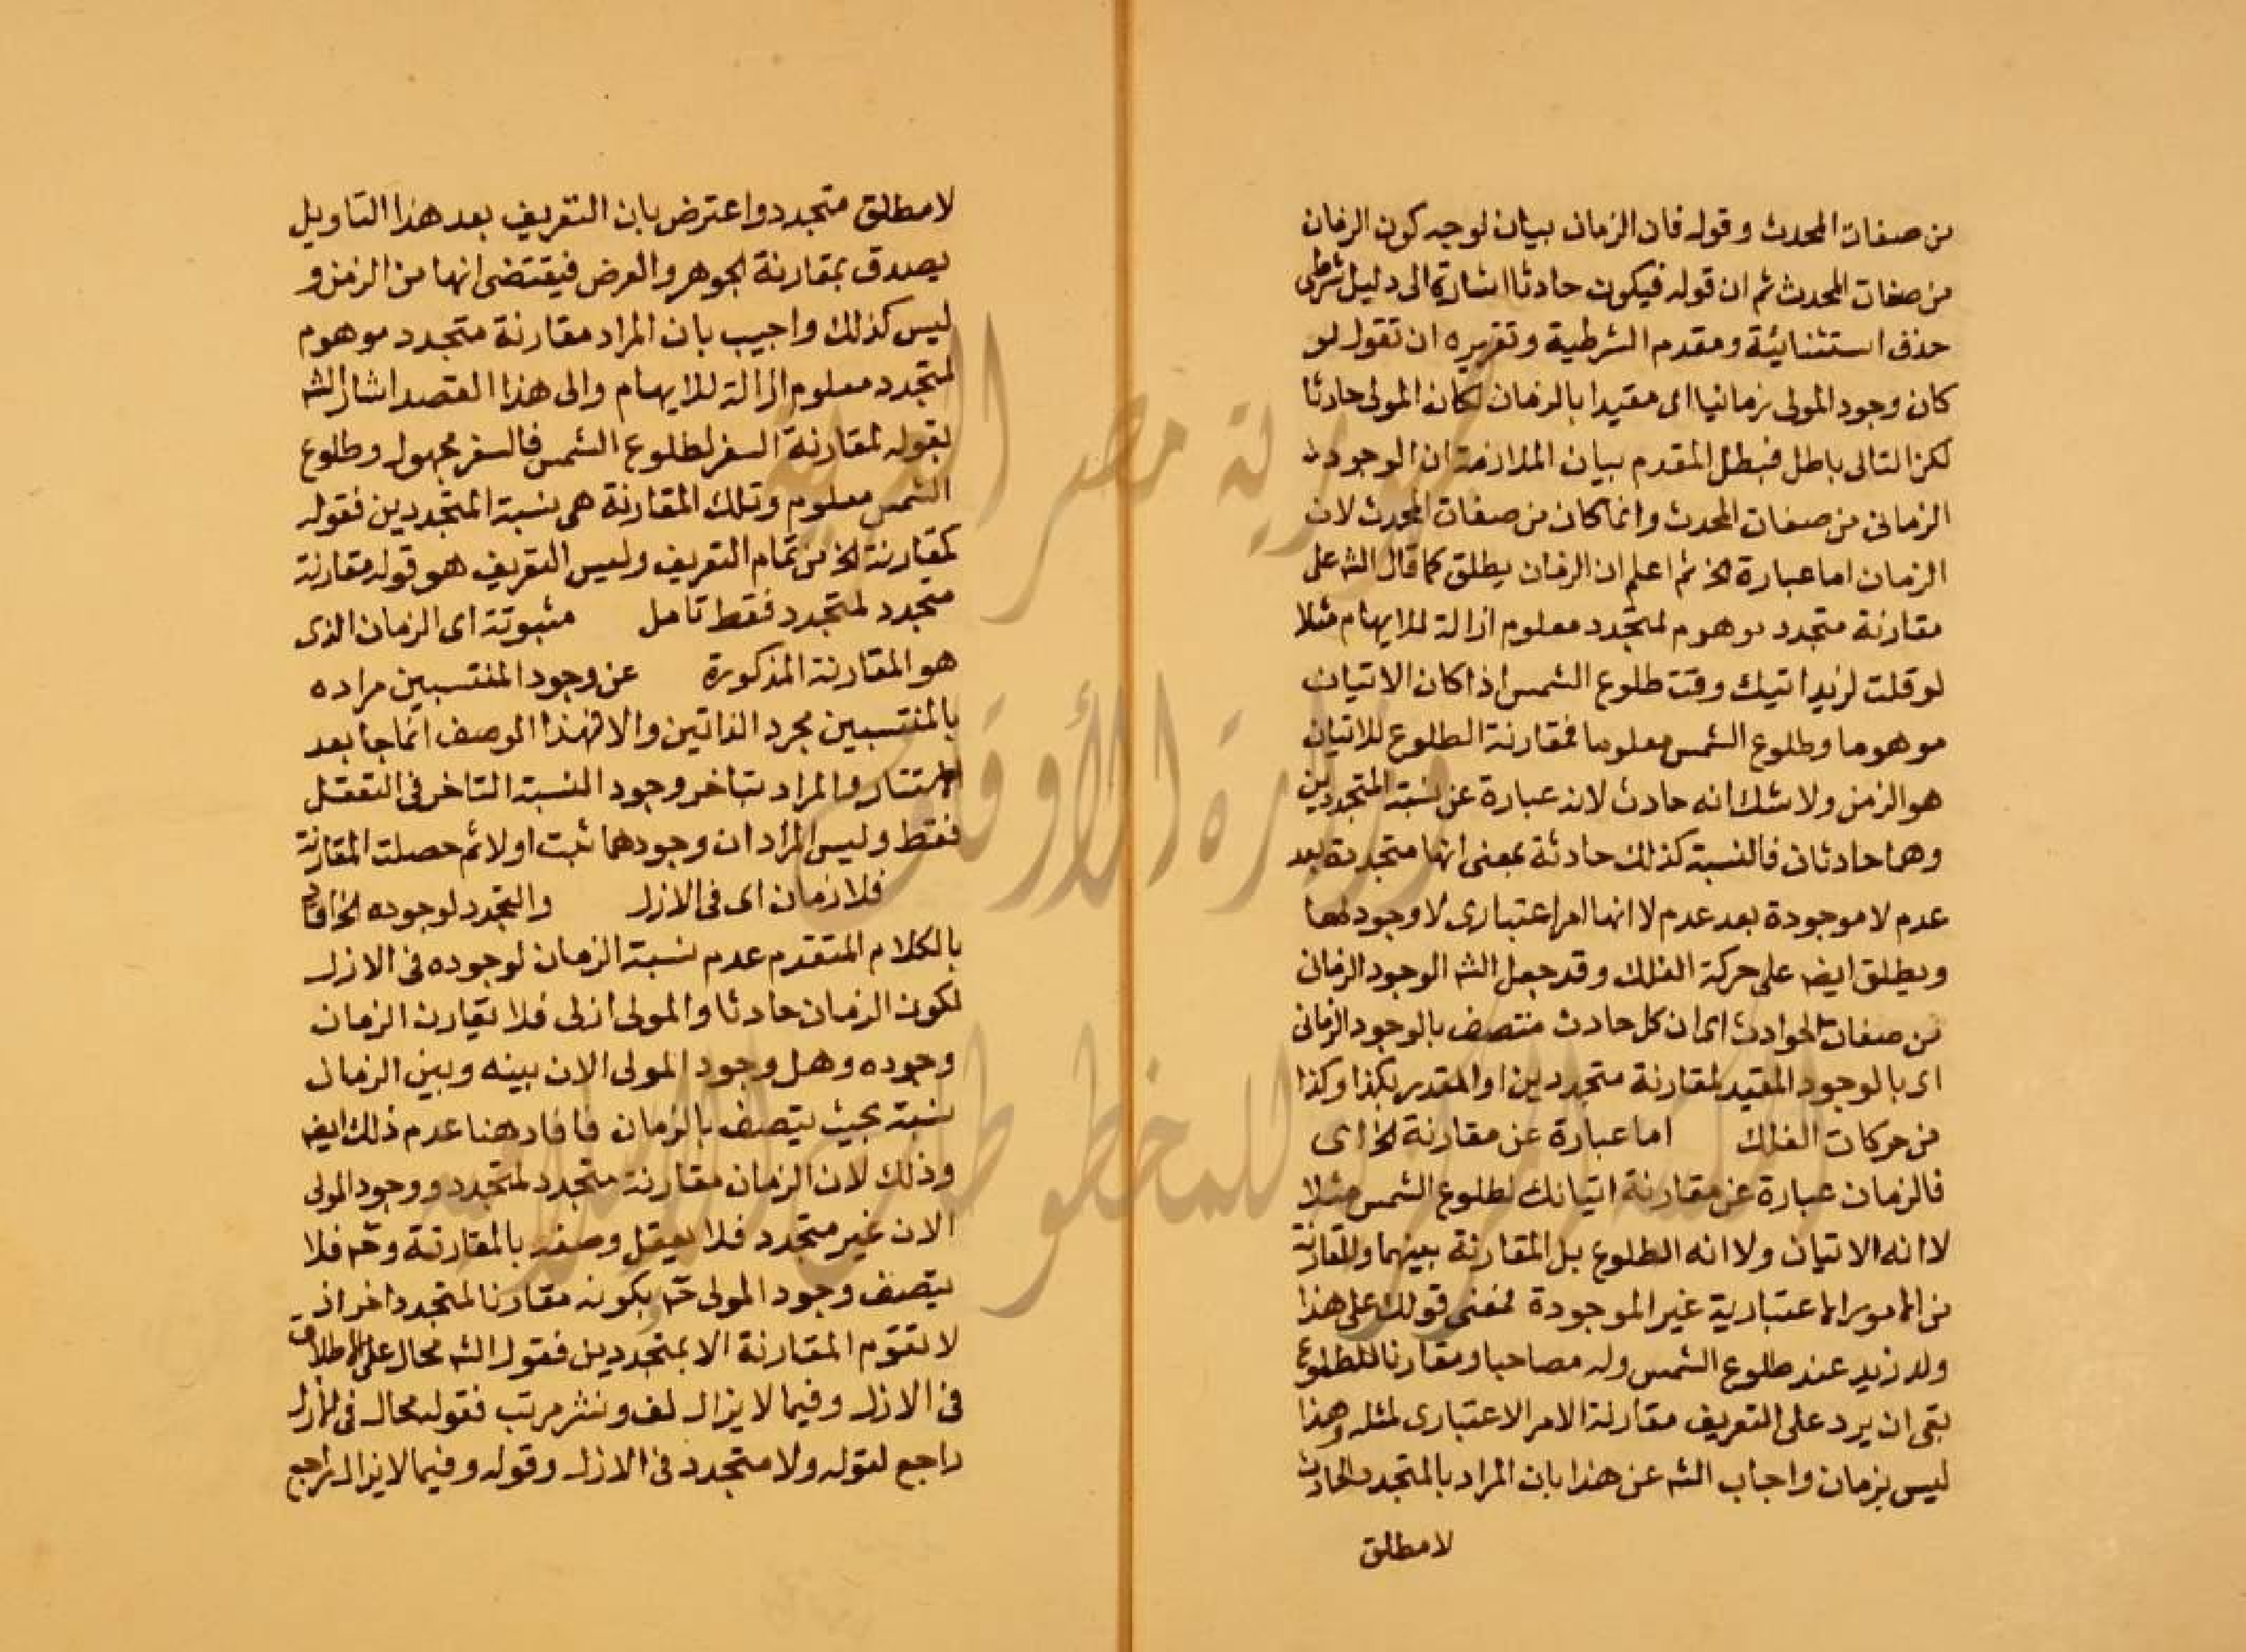 من صفات المحدث وقوله فان الزمان بيان لوجه كون الزمان
من صفات المحدث ثم ان قوله فيكون حادثا اشارة الى دليل شرطى
حذف استثنائية ومقدم الشرطية وتقريره ان تقول لو
كان وجود المولى زمانيا اى مقيدا بالزمان لكان المولى حادثا
لكن التالى باطل فبطل المقدم بيان الملازمة ان الوجود
الزمانى من صفات المحدث وانما كان من صفات المحدث لان
الزمان اما عبارة الخ ثم اعلم ان الزمان يطلق كما قال الشه على
مقارنة متجدد موهوم لمتجدد معلوم ازالة للايهام مثلا
لو قلت لزيد اتيك وقت طلوع الشمس اذا كان الاتيان
موهوما وطلوع الشمس معلوما فمقارنة الطلوع للاتيان
هو الزمن ولا شك انه حادث لانه عبارة عن نسبة المتجددين
وهما حادثان فالنسبة كذلك حادثة بمعنى انها متجددة بعد
عدم لا موجودة بعد عدم لا انها امر اعتبارى لا وجود لها
ويطلق ايضه على حركة الفلك وقد جعل الشه الوجود الزمانى
من صفات الحوادث اى ان كل حادث متصف بالوجود الزمانى
اى بالوجود المقيد لمقارنة متجددين او المقدر بكذا وكذا
من حركات الفلك اما عبارة عن مقارنة الخ اى
فالزمان عبارة عن مقارنة اتيانك لطلوع الشمس مثلا
لا انه الاتيان ولا انه الطلوع بل المقارنة بينهما والمقارنة
من الامور الاعتبارية غير الموجودة فمعنى قولك على هذا
ولد زيد عند طلوع الشمس ولد مصاحبا ومقارنا للطلوع
بقى ان يرد على التعريف مقارنة الامر الاعتبارى لمثله وهذا
ليس بزمان واجاب الشه عن هذا بان المراد بالمتجدد الحادث
لا مطلق
لا مطلق متجدد واعترض بان التعريف بعد هذا التاويل
يصدق بمقارنة الجوهر والعرض فيقتضى انها من الزمن و
ليس كذلك واجيب بان المراد مقارنة متجدد موهوم
لمتجدد معلوم ازالة للايهام والى هذا القصد اشار الشه
بقوله لمقارنة السفر لطلوع الشمس فالسفر مجهول وطلوع
الشمس معلوم وتلك المقارنة هى نسبة المتجددين فقوله
كمقارنة الخ من تمام التعريف وليس التعريف هو قوله مقارنة
متجدد لمتجدد فقط تامل اى الزمان الذى
هو المقارنة المذكورة عن وجود المنتسبين مراده
بالمنتسبين مجرد الذاتين والا فهذا الوصف انما جا بعد
والمراد بتاخر وجود النسبة التاخر فى التعقل
فقط وليس المراد ان وجودهما ثبت اولا ثم حصلت المقارنة
فلا زمان اى فى الازل والتجدد لوجوده الخ افاد
بالكلام المتقدم عدم نسبة الزمان لوجوده فى الازل
لكون الزمان حادثا والمولى ازلى فلا يقارن الزمان
وجوده وهل وجود المولى الان بينه وبين الزمان
نسبة بحيث يتصف بالزمان فافاد هنا عدم ذلك ايضه
وذلك لان الزمان مقارنة متجدد لمتجدد ووجود المولى
الان غير متجدد فلا يعقل وصفه بالمقارنة وح فلا
يتصف وجود المولى ح بكونه مقارنا لمتجدد اخر اذ
لا تقوم المقارنة الا بمتجددين فقول الشه محال على الاطلاق
فى الازل وفيما لا يزال لف ونشر مرتب فقوله محال فى الازل
راجع لقوله ولا متجدد فى الازل وقوله وفيما لا يزال راجع